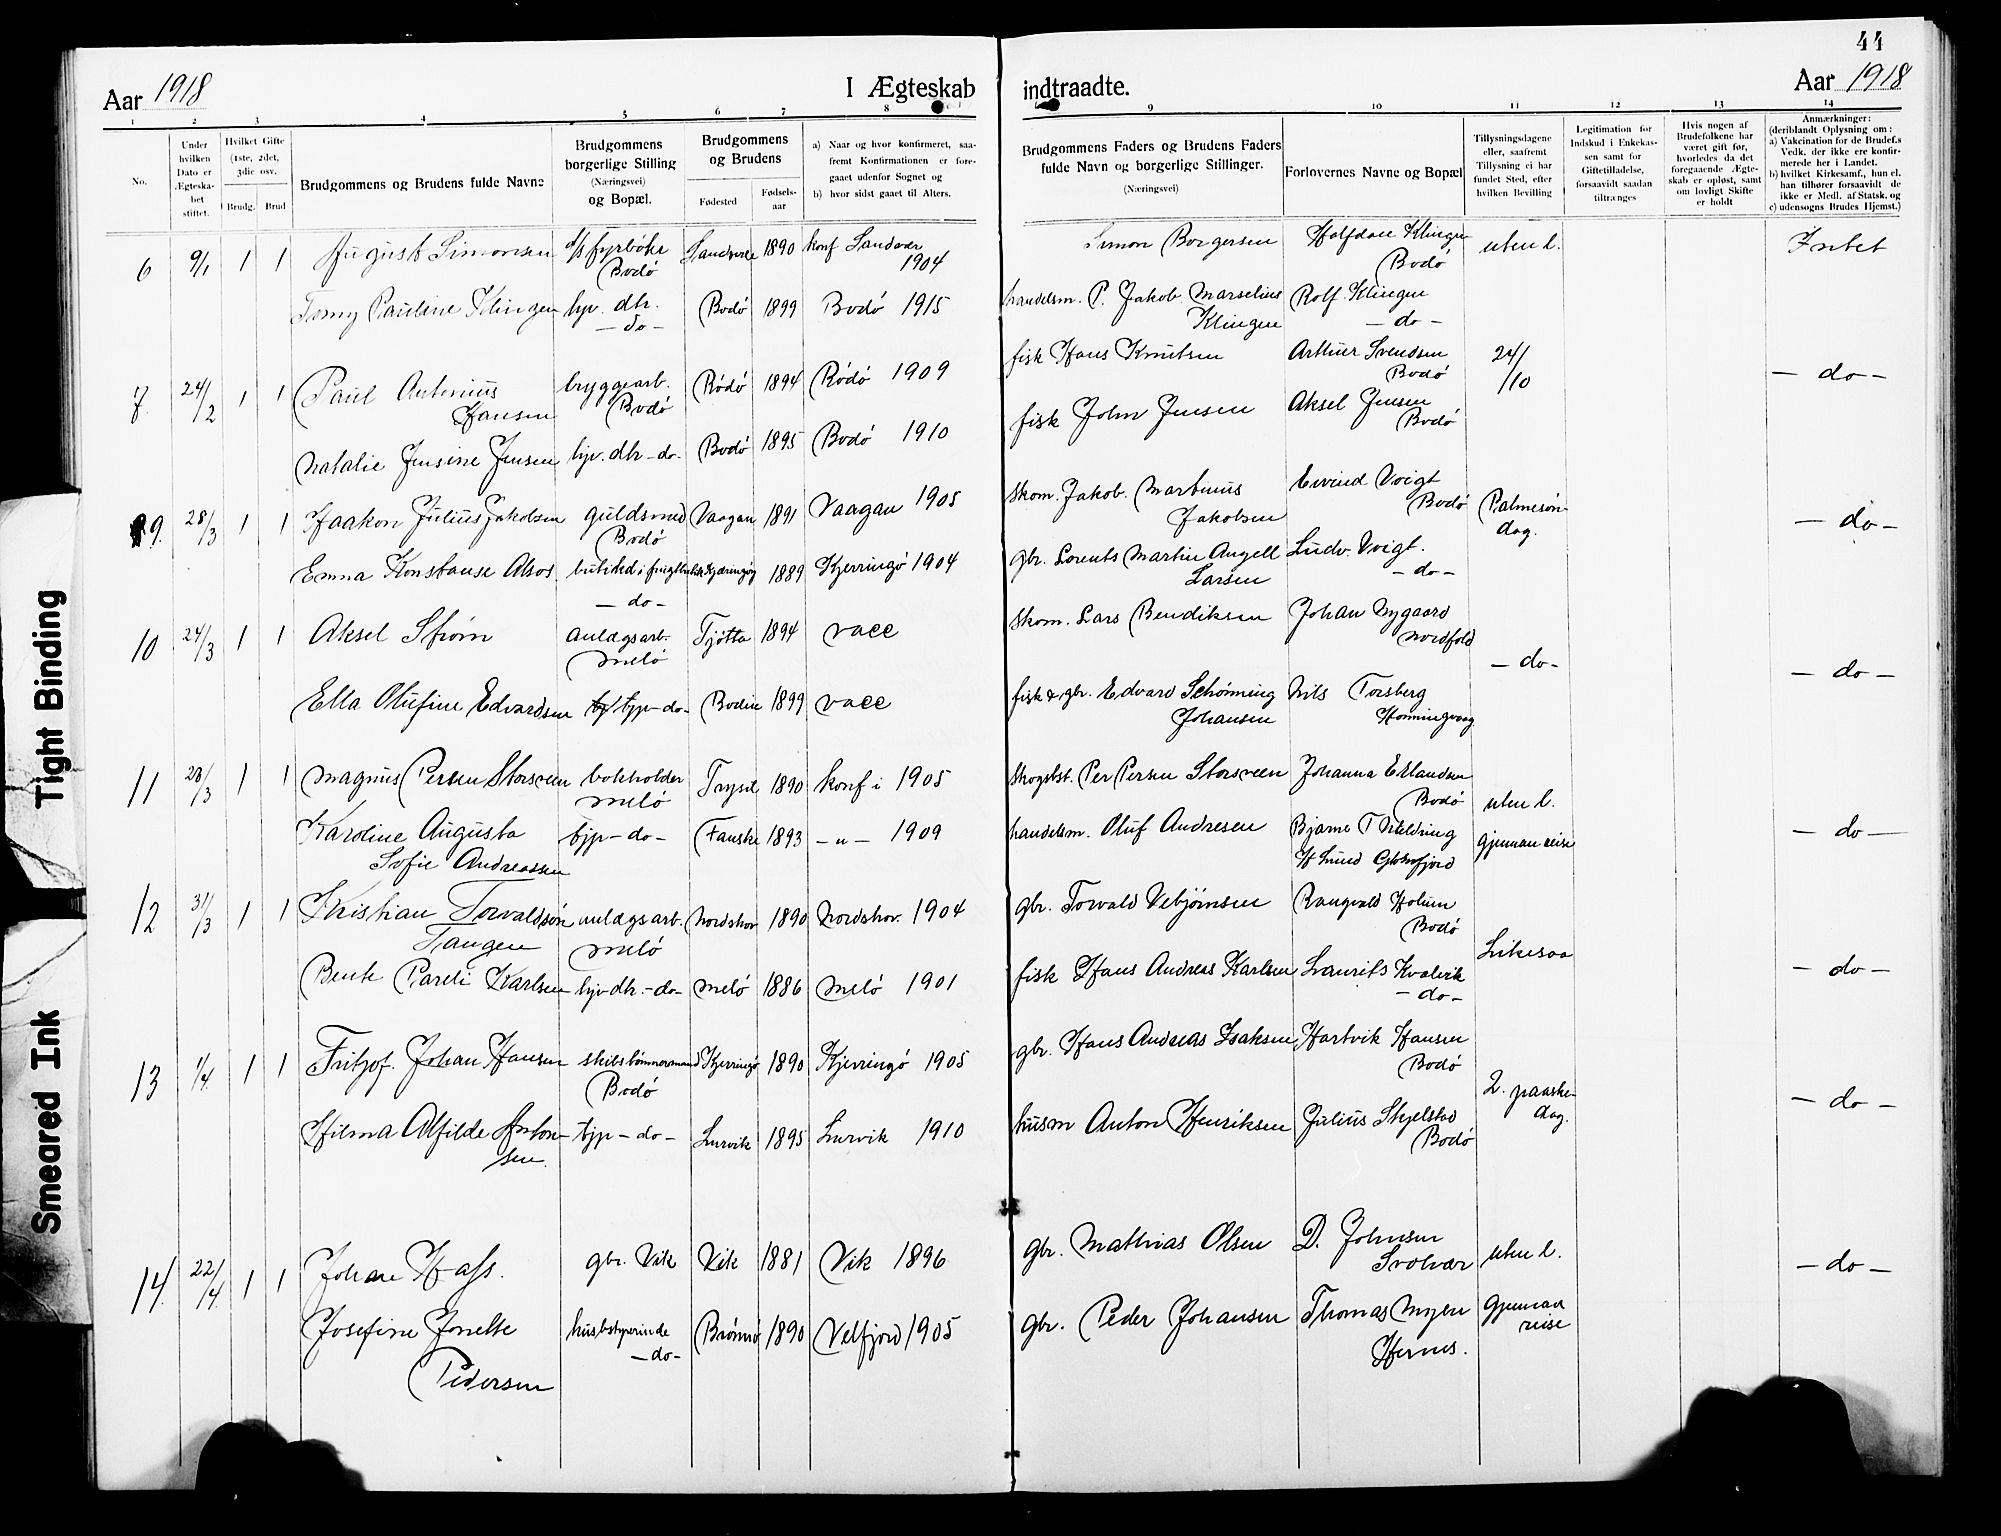 44
Aar 1918
I Ægteskab
indtraadte.
Aar 1918
1 2 3 4 5 6 7 8 9 10 11 12 13 14
No.
Under hvilken Dato er Ægteskabet stiftet.
Hvilket Gifte (1ste, 2det, 3die osv.
Brudg. Brud
Brudgommens og Brudens fulde Navne
Brudgommens borgerlige Stilling (Næringsvei) og Bopæl.
Brudgommens og Brudens
Fødested
Fødsels-aar
a) Naar og hvor konfirmeret, saafremt Konfirmationen er foregaaet udenfor Sognet og
b) hvor sidst gaaet til Alters.
Brudgommens Faders og Brudens Faders fulde Navn og borgerlige Stillinger.
(Næringsvei)
Forlovernes Navne og Bopæl
Tillysningsdagene eller, saafremt Tillysning ei har fundet Sted, efter hvilken Bevilling
Legitimation for Indskud i Enkekassen samt for Giftetilladelse, forsaavidt saadan tiltrænges
Hvis nogen af Brudefolkene har været gift før, hvorledes da det foregaaende Ægteskab er opløst, samt om lovligt Skifte er holdt
Anmærkninger:
(deriblandt Oplysning om:
a) Vakcination for de Brudef.s Vedk. der ikke ere konfirmerede her i Landet.
b) hvilket Kirkesamf., hun el. han tilhører forsaavidt de ikke er Medl. af Statsk. og
c) udensogns Brudes Hjemst.)
6 9/1 1 1 August Simonsen d/s fyrbøter Bodö 1890 konf Sandvær 1904 Simon Borgersen Halfdan Klingen Bodö uten l. Intet
Tomy Pauline Klingen hjv. dtr. - do - Bodö 1899 Bodö 1915 handelsm. P. Jakob Marselius Klingen Rolf Klingen - do -
7 24/2 1 1 Paul Antonius Hansen bryggearb. Bodö Rödö 1894 Rödö 1909 fisk Hans Knutsen Arthur Svendsen Bodö 24/ /10 - do -
Natalie Jensine Jensen hjv. dtr - do - Bodö 1895 Bodö 1910 fisk John Jensen Aksel Jensen Bodö
9. 28/3 1 1 Haakon Julius Jakobsen guldsmed Bodö Vaagan 1891 Vaagan 1905 skom. Jakob Martinus Jakobsen Eivind Voigt Bodö Palmesöndag. - do -
Emma Konstanse Alsos - do - 1889 Kjerringö 1904 gbr. Lorents Martin Angell Larsen Ludv. Voigt. - do -
10 24/3 1 1 Aksel Ström anlægsarb. Melö Tjötta 1894 vacc skom. Lars Bendiksen Johan Nygaard Nordfold - do - - do -
Ella Olufine Edvardsen tjp - do - Bodin 1899 vacc fisk & gbr. Edvard Schönning Johansen Nils Torsberg Honningvaag
11 28/3 1 1 Magnus Persen Storsveen bokholder Melö Trysil 1890 konf i 1905 skogsbst. Per Persen Storsveen Johanna Erlandsen Bodö uten l. gjennemreise - do -
Karoline Augusta Sofie Andreassen tjp - do - Fauske 1893 - " - 1909 handelsm. Oluf Andresen Bjarne T. Meldring H Lund Glomfjord
12 31/3 1 1 Kristian Torvaldsön Tangen anlægsarb. Melö Nordskov 1890 Nordskov. 1904 gbr. Torvald Vebjörnsen Rangvald Holum Bodö - do -
Berit Pareli Karlsen hjv dtr. - do - Melö 1886 Melö 1901 fisk Hans Andreas Karlsen Laurits Kvalvik - do -
13 1/4. 1 1 Fritjof. Johan Hansen skibstömmermand Bodö Kjerringö 1890 Kjerringö 1905 gbr. Hans Andreas Isaksen Hartvik Hansen Bodö 2. paaskedag. - do -
Hilma Alfilde Antonsen. tjp - do - Lurvik 1895 Lurvik 1910 husm Anton Henriksen Julius Skjelstad Bodö
14. 22/4. 1 1 Johan Hass. gbr. Vik Vik 1881 Vik 1896 gbr. Mathias Olsen D. Johnsen Svolvær uten l. gjennemreise - do -
Josefine Jonette Pedersen husbstyrerinde - do - Brönnö 1890 Velfjord 1905 gbr. Peder Johansen Thomas Myen Hernes.
Tight Binding
Smeared Ink